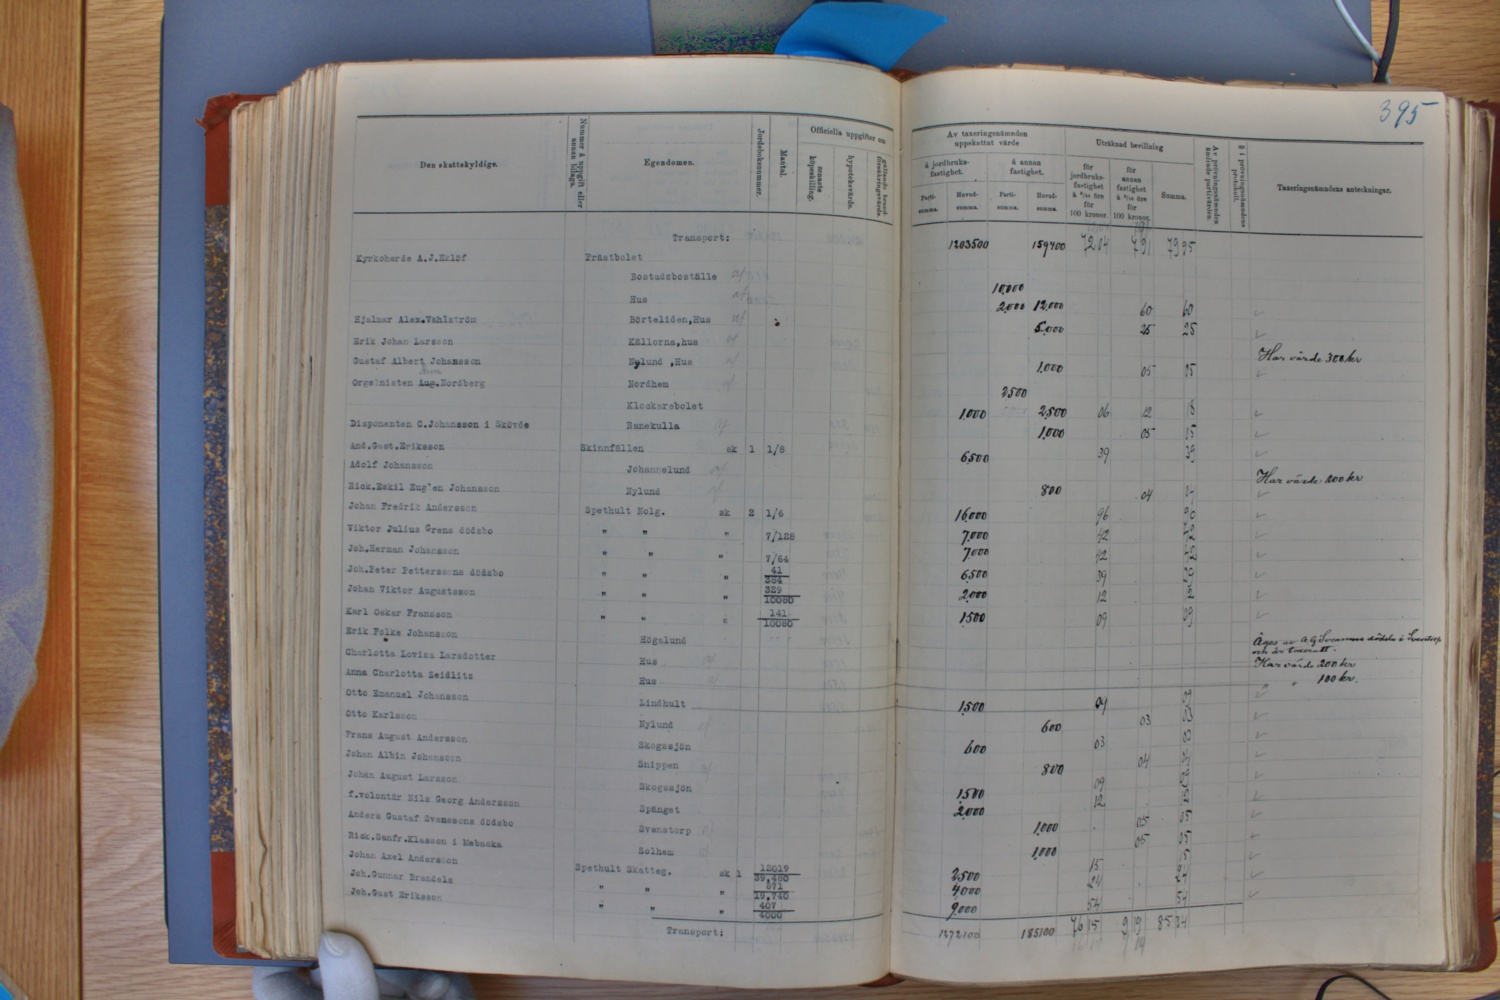 395
Den skattskyldige.
Nummer å uppgift eller annan bilaga.
Egendomen.
Jordeboksnummer.
Mantal.
Officiella uppgifter om
senaste köpeskilling.
hypoteksvärde.
gällande brandförsäkringsvärde.
Av taxeringsnämnden uppskattat värde
å jordbruksfastighet.
å annan fastighet.
Partisumma.
Huvudsumma.
Partisumma.
Huvudsumma.
Uträknad bevillning
för jordbruksfastighet å 6/10 öre för 100 kronor.
för annan fastighet å 5/10 öre för 100 kronor.
Summa.
Av prövningsnämnden ändrade partivärden.
§ i prövningsnämndens protokoll.
Taxeringsnämndens anteckningar.
Transport: 1203500 159400 7204 791 7995
Kyrkoherde A.J.Eklöf Prästbolet
Bostadsboställe 10,000
Hus 2,000 12,000 60 60
Hjalmar Alex.Wahlström Börteliden,Hus 5,000 25 25
Erik Johan Larsson Källorna,hus Har värde 300 kr
Gustaf Albert Johansson Nylund ,Hus 1,000 05 05
Organisten Aug.Nordberg Nordhem 2500
Klockarebolet 1,000 2,500 06 12 18
Disponenten C.Johansson i Skövde Ranekulla 1,000 05 05
And.Gust.Eriksson Skinnfällen sk 1 1/8 6,500 39 39
Adolf Johansson Johannelund Har värde 200 kr
Rick.Eskil Eug'en Johansson Nylund 800 04
Johan Fredrik Andersson Spethult Nolg. sk 2 1/6 16,000 96
Viktor Julius Grens dödsbo " " " 7/128 7,000 42
Joh.Herman Johansson " " " 7/64 7,000 42
Joh.Peter Petterssons dödsbo " " " 41/384 6,500 39
Johan Viktor Augustsson " " " 329/10080 2,000 12
Karl Oskar Fransson " " " 141/10080 1,500 09 09
Erik Folke Johansson Högalund
Charlotta Lovisa Larsdotter Hus Har värde 200 kr
Anna Charlotta Zeidlitz Hus " 100 kr.
Otto Emanuel Johansson Lindhult 1,500 09 09
Otto Karlsson Nylund 600 03 03
Frans August Andersson Skogssjön 600 03 03
Johan Albin Johansson Snippen 800 04
Johan August Larsson Skogssjön 1,500 09
f.volontär Nils Georg Andersson Spånget 2,000 12
Anders Gustaf Svenssons dödsbo Svenstorp 1,000 05 05
Rick.Sanfr.Klasson i Mebacka Solhem 1,000 05 05
Johan Axel Andersson Spethult Skatteg. sk 1 2,500 15
Joh.Gunnar Brandels " " " 571/19,740 4,000 24
Joh.Gust Eriksson " " " 407/4000 9,000 54
Transport: 1272100 185100 7615 919 8534